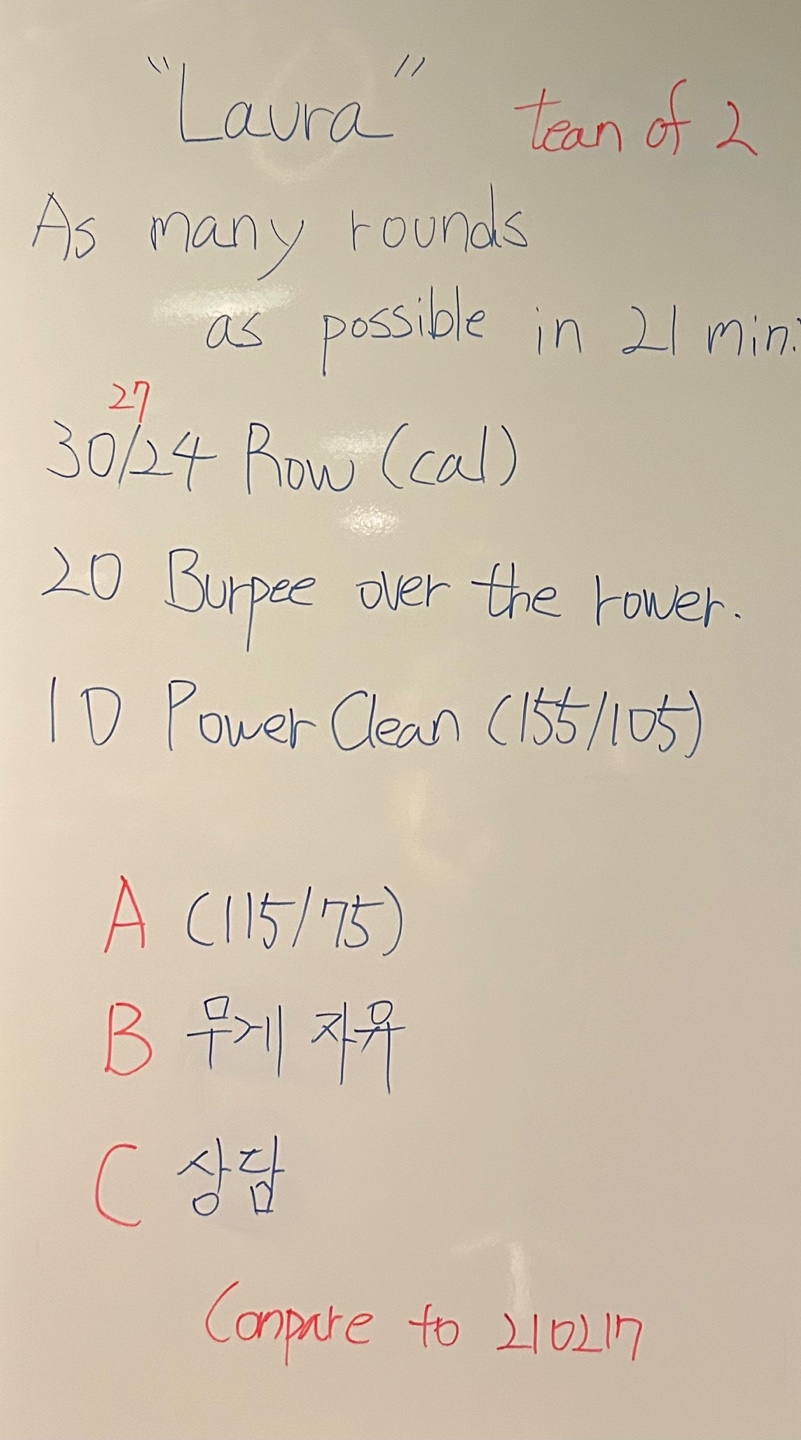 "Laura" tean of 2
As many rounds
as possible in 21 min.
27
30/24 Row (cal)
20 Burpee over the rower.
10 Power Clean (155/105)
A (115/75)
B 무게 자유
C 상담
Conpare to 210217